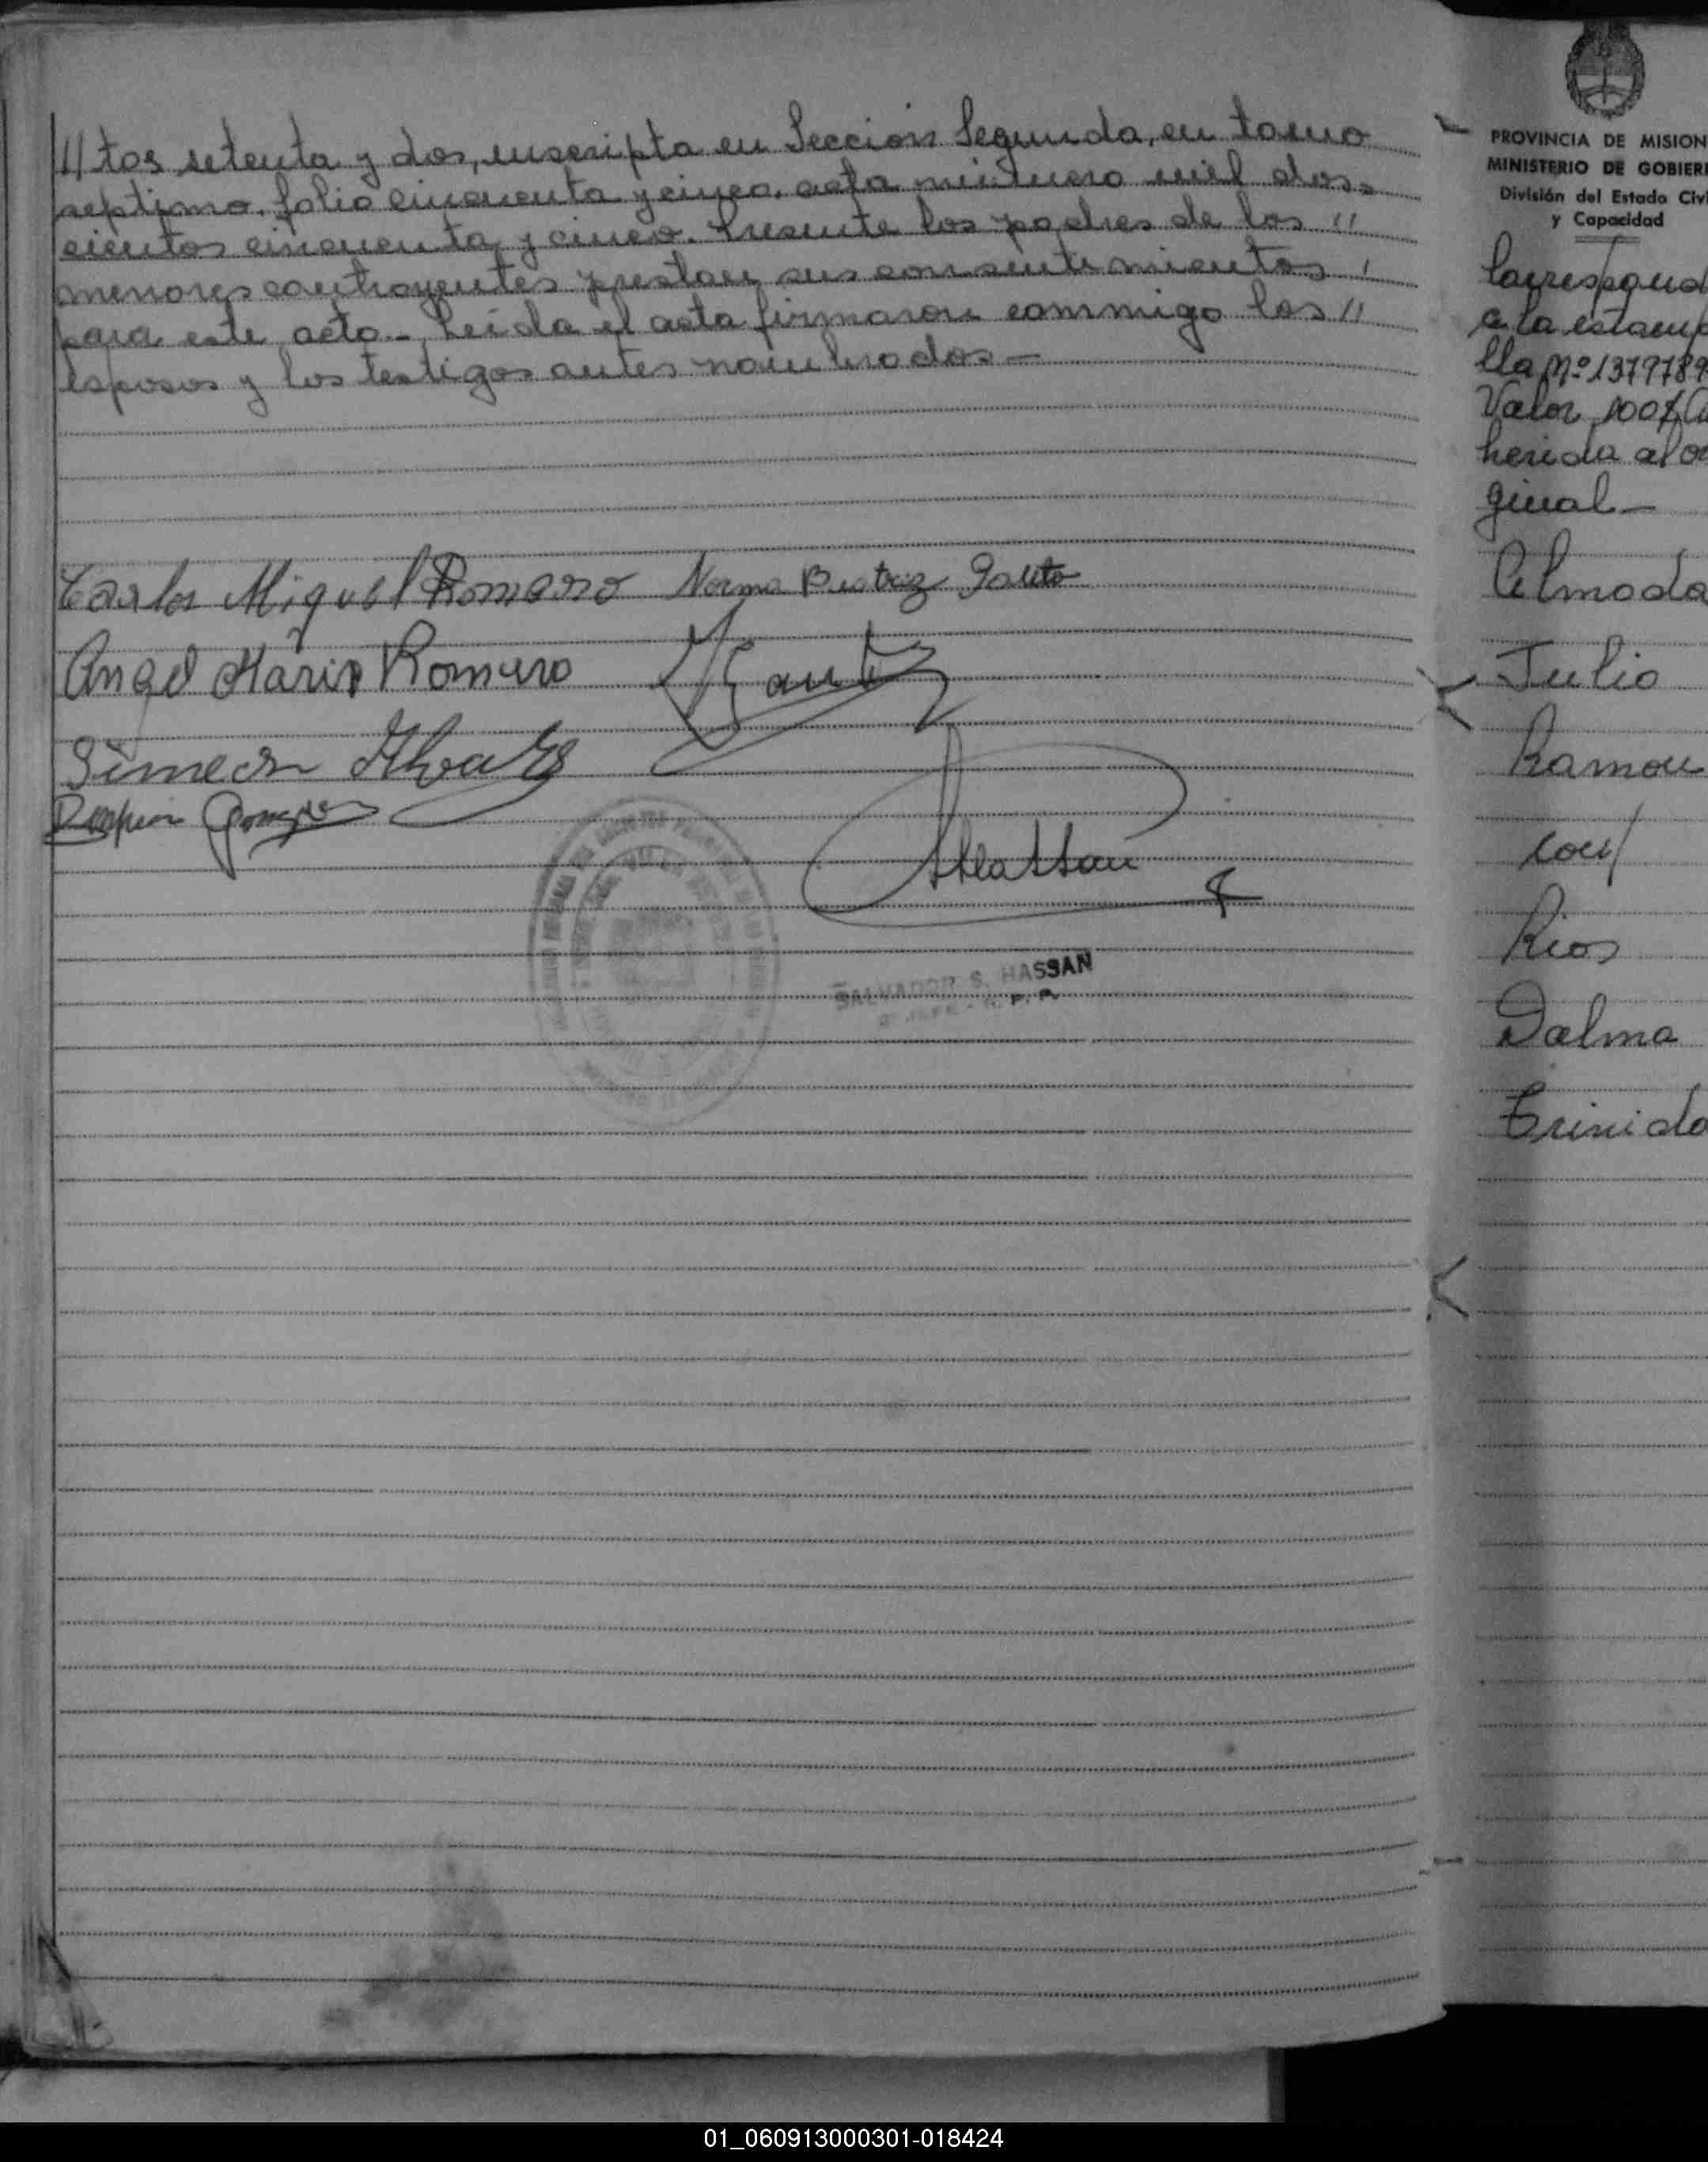 // tos setenta y dos, inscripta en Sección Segunda, en tomo
septimo, folio cincuenta y cinco, acta número mil dos-
cientos cincuenta y cinco. Presente los padres de los //
menores contrayentes prestan sus consentimientos /
para este acto.- Leída el acta firmaron conmmigo los //
esposos y los testigos antes nombrados.-
Carlos Miguel Romero Norma Beatriz
Angel Mario Romero
Simeon
SALVADOR S. HASSAN
PROVINCIA DE MISION
MINISTERIO DE GOBIER
División del Estado Civi
y Capacidad
Correspond
a la estamp
lla Nº 1379789
Valor 100
herida al o
ginal-
Almada
Julio
Ramon
con/
Rios
Dalma
Trinida
01_060913000301-018424